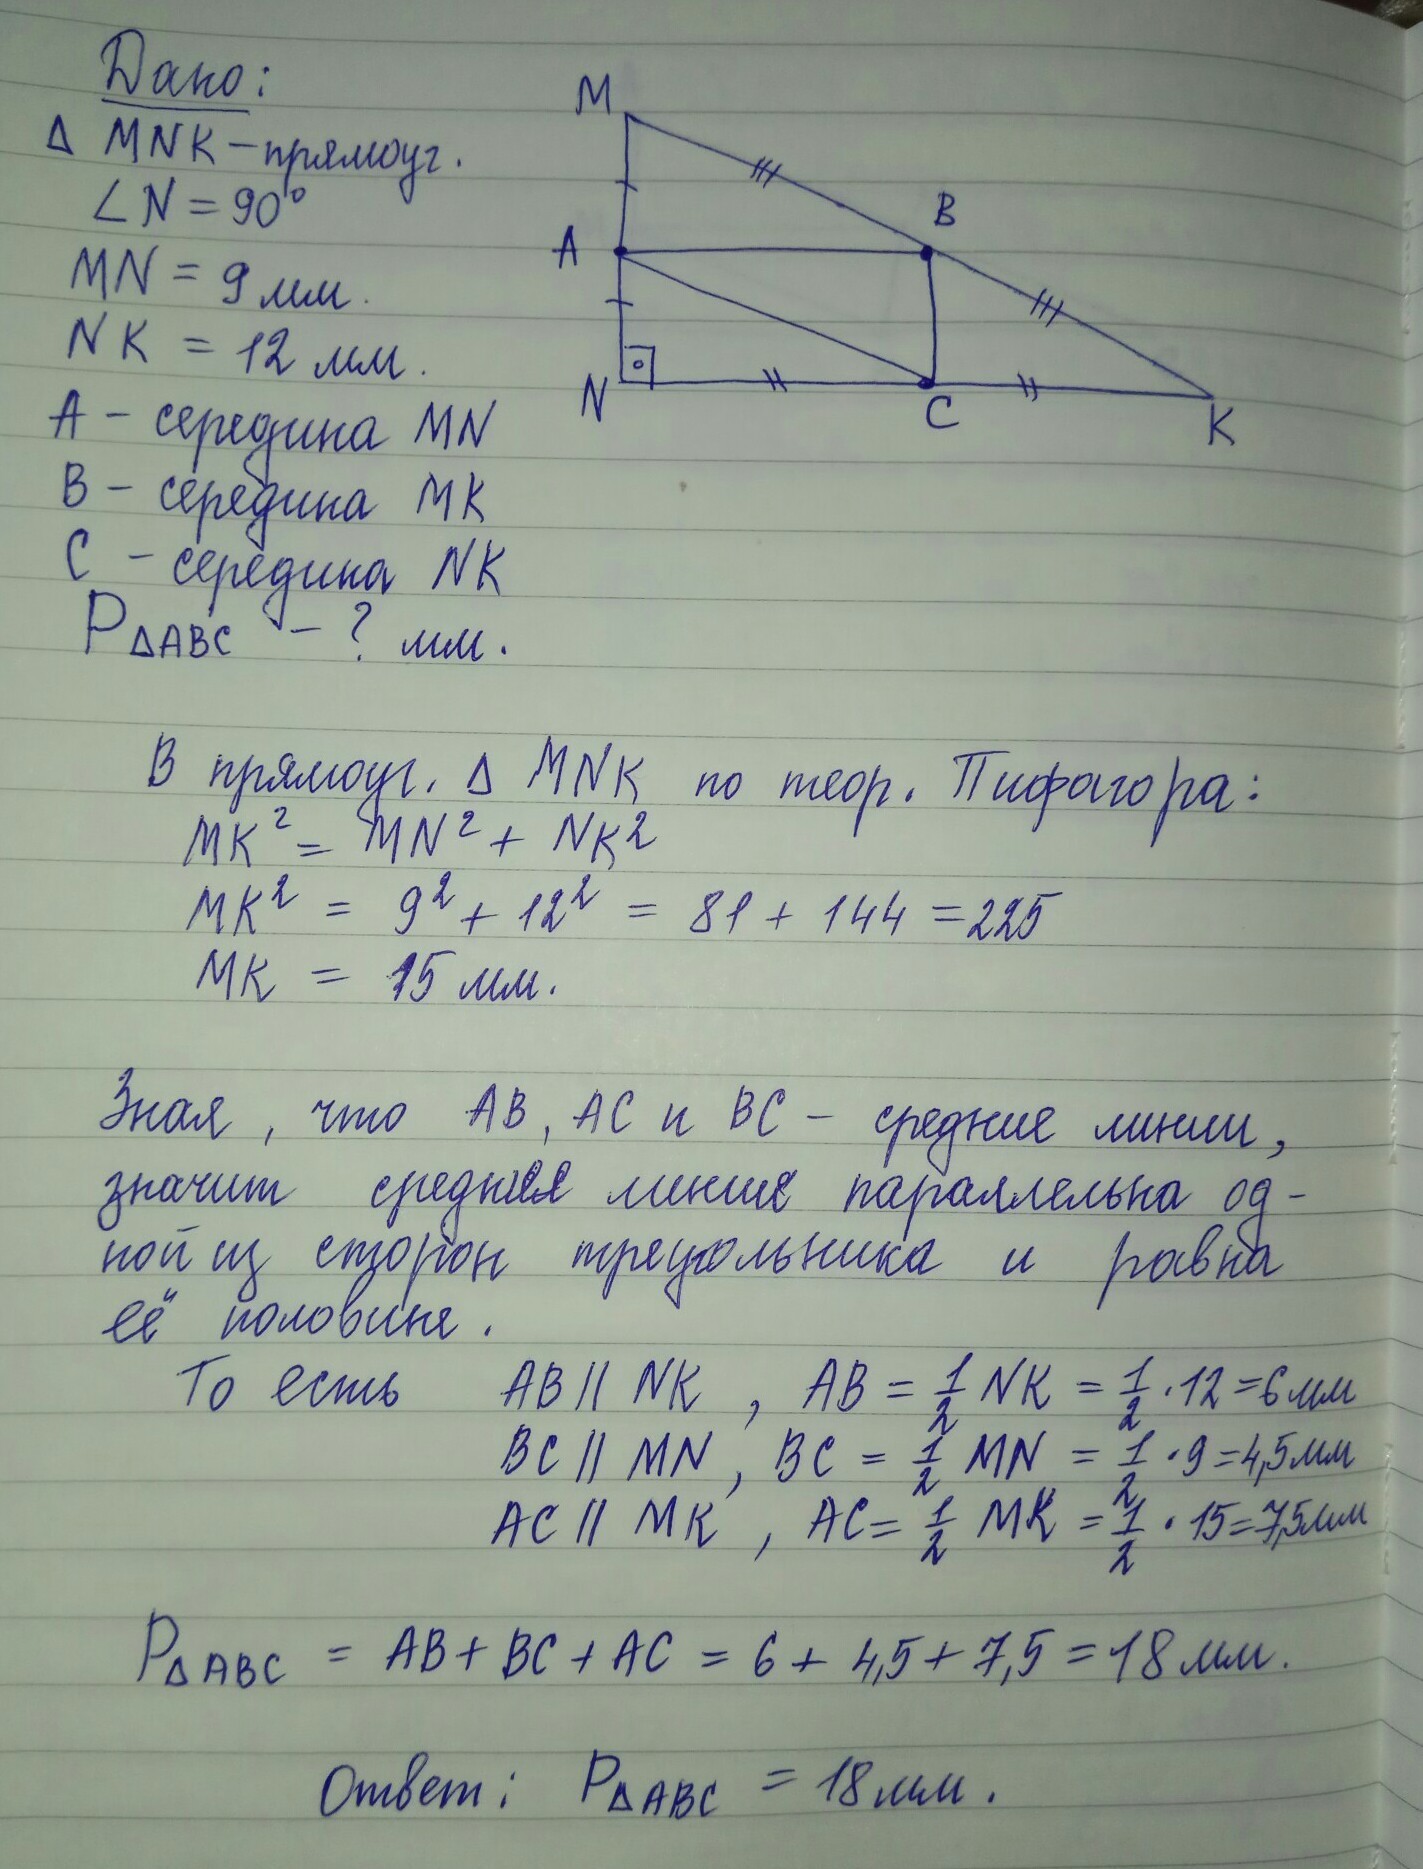 Дано:
Δ MNK – прямоуг.
∠N = 90°
MN = 9 мм.
NK = 12 мм.
A – середина MN
B – середина MK
C – середина NK
P ΔABC – ? мм.
M
B
A
N
C
K
В прямоуг. Δ MNK по теор. Пифагора:
MK² = MN² + NK²
MK² = 9² + 12² = 81 + 144 = 225
MK = 15 мм.
Зная, что AB, AC и BC – средние линии,
значит средняя линия параллельна од-
ной из сторон треугольника и равна
её половине.
То есть AB || NK, AB = 1/2 NK = 1/2 · 12 = 6 мм
BC || MN, BC = 1/2 MN = 1/2 · 9 = 4,5 мм
AC || MK, AC = 1/2 MK = 1/2 · 15 = 7,5 мм
P ΔABC = AB + BC + AC = 6 + 4,5 + 7,5 = 18 мм.
Ответ: P ΔABC = 18 мм.